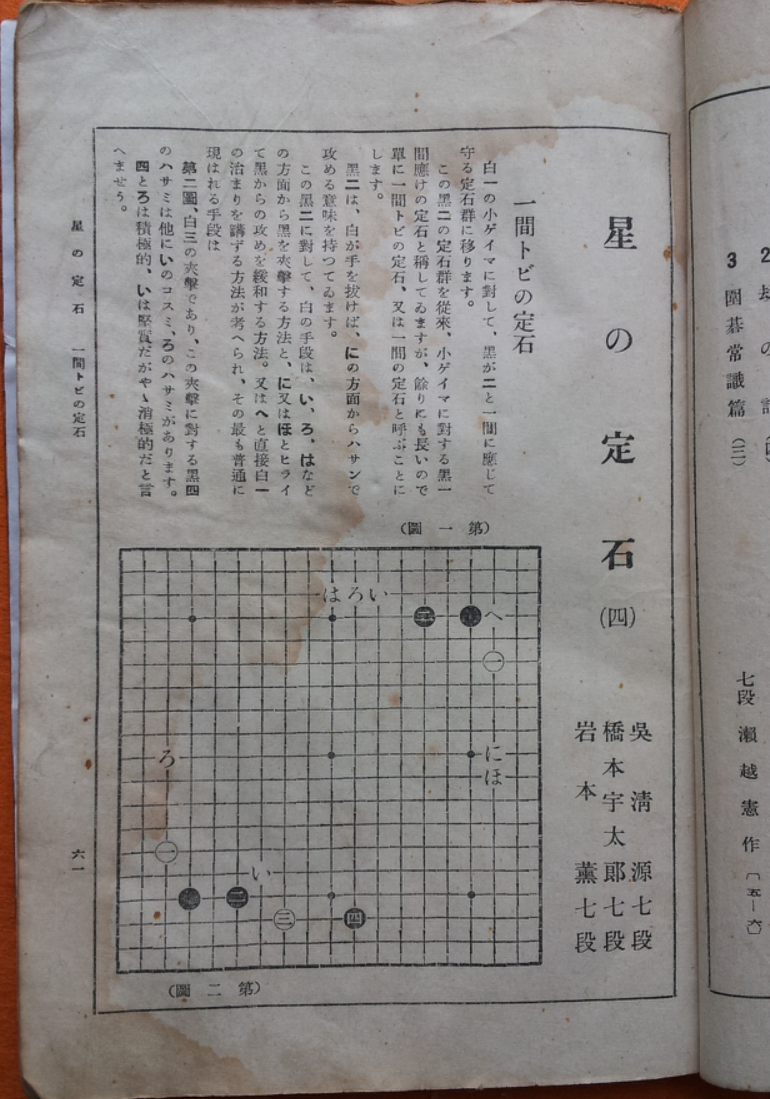 3 圍碁常識篇 (三)
七段 瀨越憲作 〔五―六〕
星の定石(四)
吳淸源七段
橋本宇太郞七段
岩本薰七段
一間トビの定石
白一の小ゲイマに對して、黑が二と一間に應じて
守る定石群に移ります。
この黑二の定石群を從來、小ゲイマに對する黑一
間應けの定石と稱してゐますが、餘りにも長いので
單に一間トビの定石、又は一間の定石と呼ぶことに
します。
黑二は、白が手を拔けば、にの方面からハサンで
攻める意味を持つてゐます。
この黑二に對して、白の手段は、い、ろ、はなど
の方面から黑を夾擊する方法と、に又はほとヒライ
て黑からの攻めを緩和する方法。又はへと直接白一
の治まりを講ずる方法が考へられ、その最も普通に
現はれる手段は
第二圖、白三の夾擊であり、この夾擊に對する黑四
のハサミは他にいのコスミ、ろのハサミがあります。
四とろは積極的、いは堅實だがやゝ消極的だと言
へませう。
(第一圖)
はろい
二
へ
一
に
ほ
ろ
一
い
二
三
四
(第二圖)
星の定石 一間トビの定石
六一